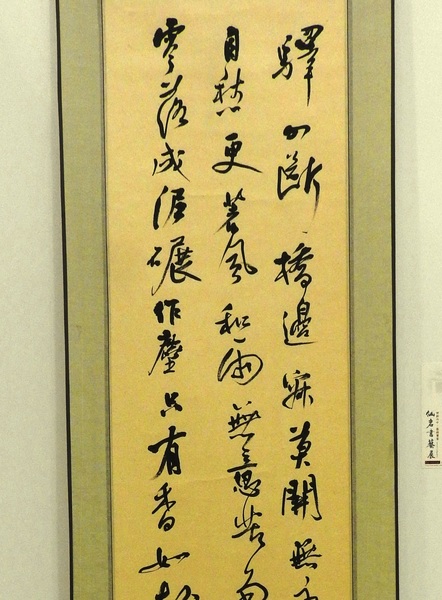 驛外斷橋邊寂莫開無
自愁更著風和雨無意苦爭
零落成泥碾作塵只有香如故
書藝展